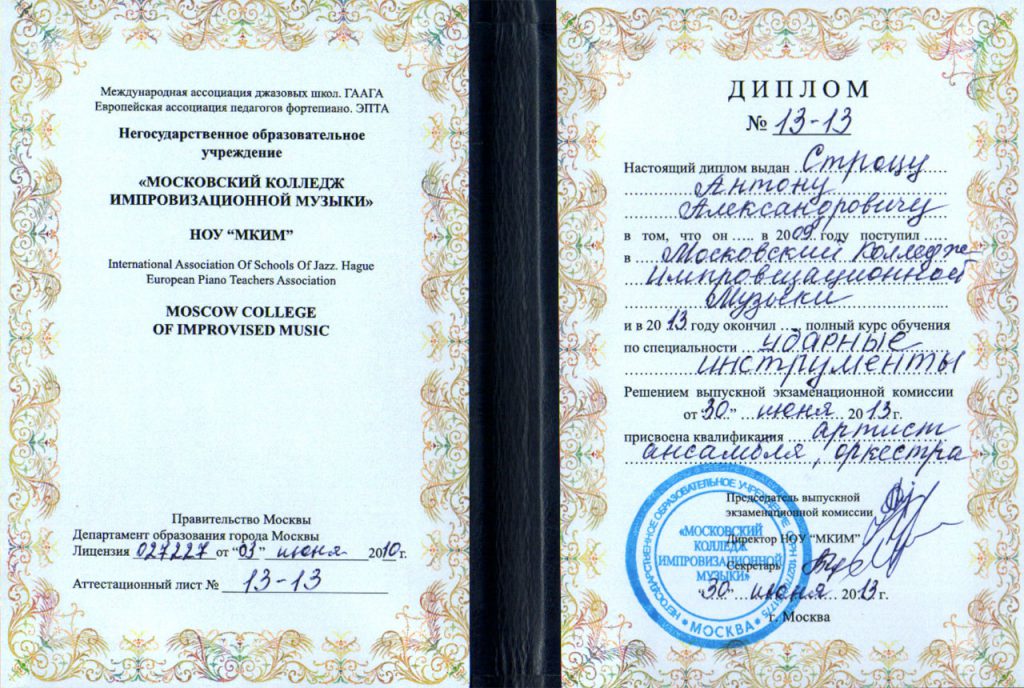 Международная ассоциация джазовых школ. ГААГА
Европейская ассоциация педагогов фортепиано. ЭПТА
Негосударственное образовательное
учреждение
«МОСКОВСКИЙ КОЛЛЕДЖ
ИМПРОВИЗАЦИОННОЙ МУЗЫКИ»
НОУ “МКИМ”
International Association Of Schools Of Jazz. Hague
European Piano Teachers Association
MOSCOW COLLEGE
OF IMPROVISED MUSIC
Правительство Москвы
Департамент образования города Москвы
Лицензия 027227 от “03” июня 2010г.
Аттестационный лист № 13-13
ДИПЛОМ
№ 13-13
Настоящий диплом выдан Строцу
Антону
Александровичу
в том, что он ..... в 2009 году поступил .....
в Московский Колледж
Импровизационной
Музыки
и в 2013 году окончил ..... полный курс обучения
по специальности ударные
инструменты
Решением выпускной экзаменационной комиссии
от “30” июня 2013г.
присвоена квалификация артист
ансамбля, оркестра
Председатель выпускной
экзаменационной комиссии
Директор НОУ “МКИМ”
Секретарь
“30” июня 2013г.
г. Москва
НЕГОСУДАРСТВЕННОЕ ОБРАЗОВАТЕЛЬНОЕ УЧРЕЖДЕНИЕ
«МОСКОВСКИЙ
КОЛЛЕДЖ
ИМПРОВИЗАЦИОННОЙ
МУЗЫКИ»
• МОСКВА •